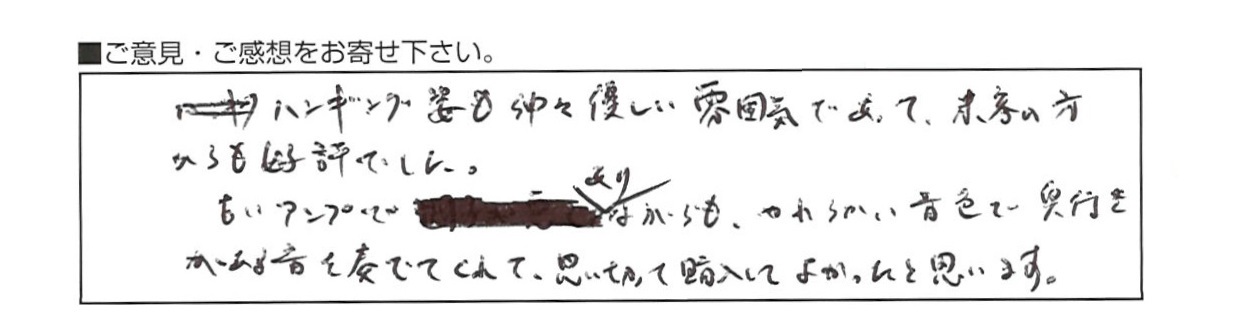 ■ご意見・ご感想をお寄せ下さい。
ハンギング姿も仲々優しい雰囲気であって、来客の方
からも好評でした。
古いアンプでありながらも、やわらかい音色で奥行き
がある音を奏でてくれて、思い切って購入してよかったと思います。